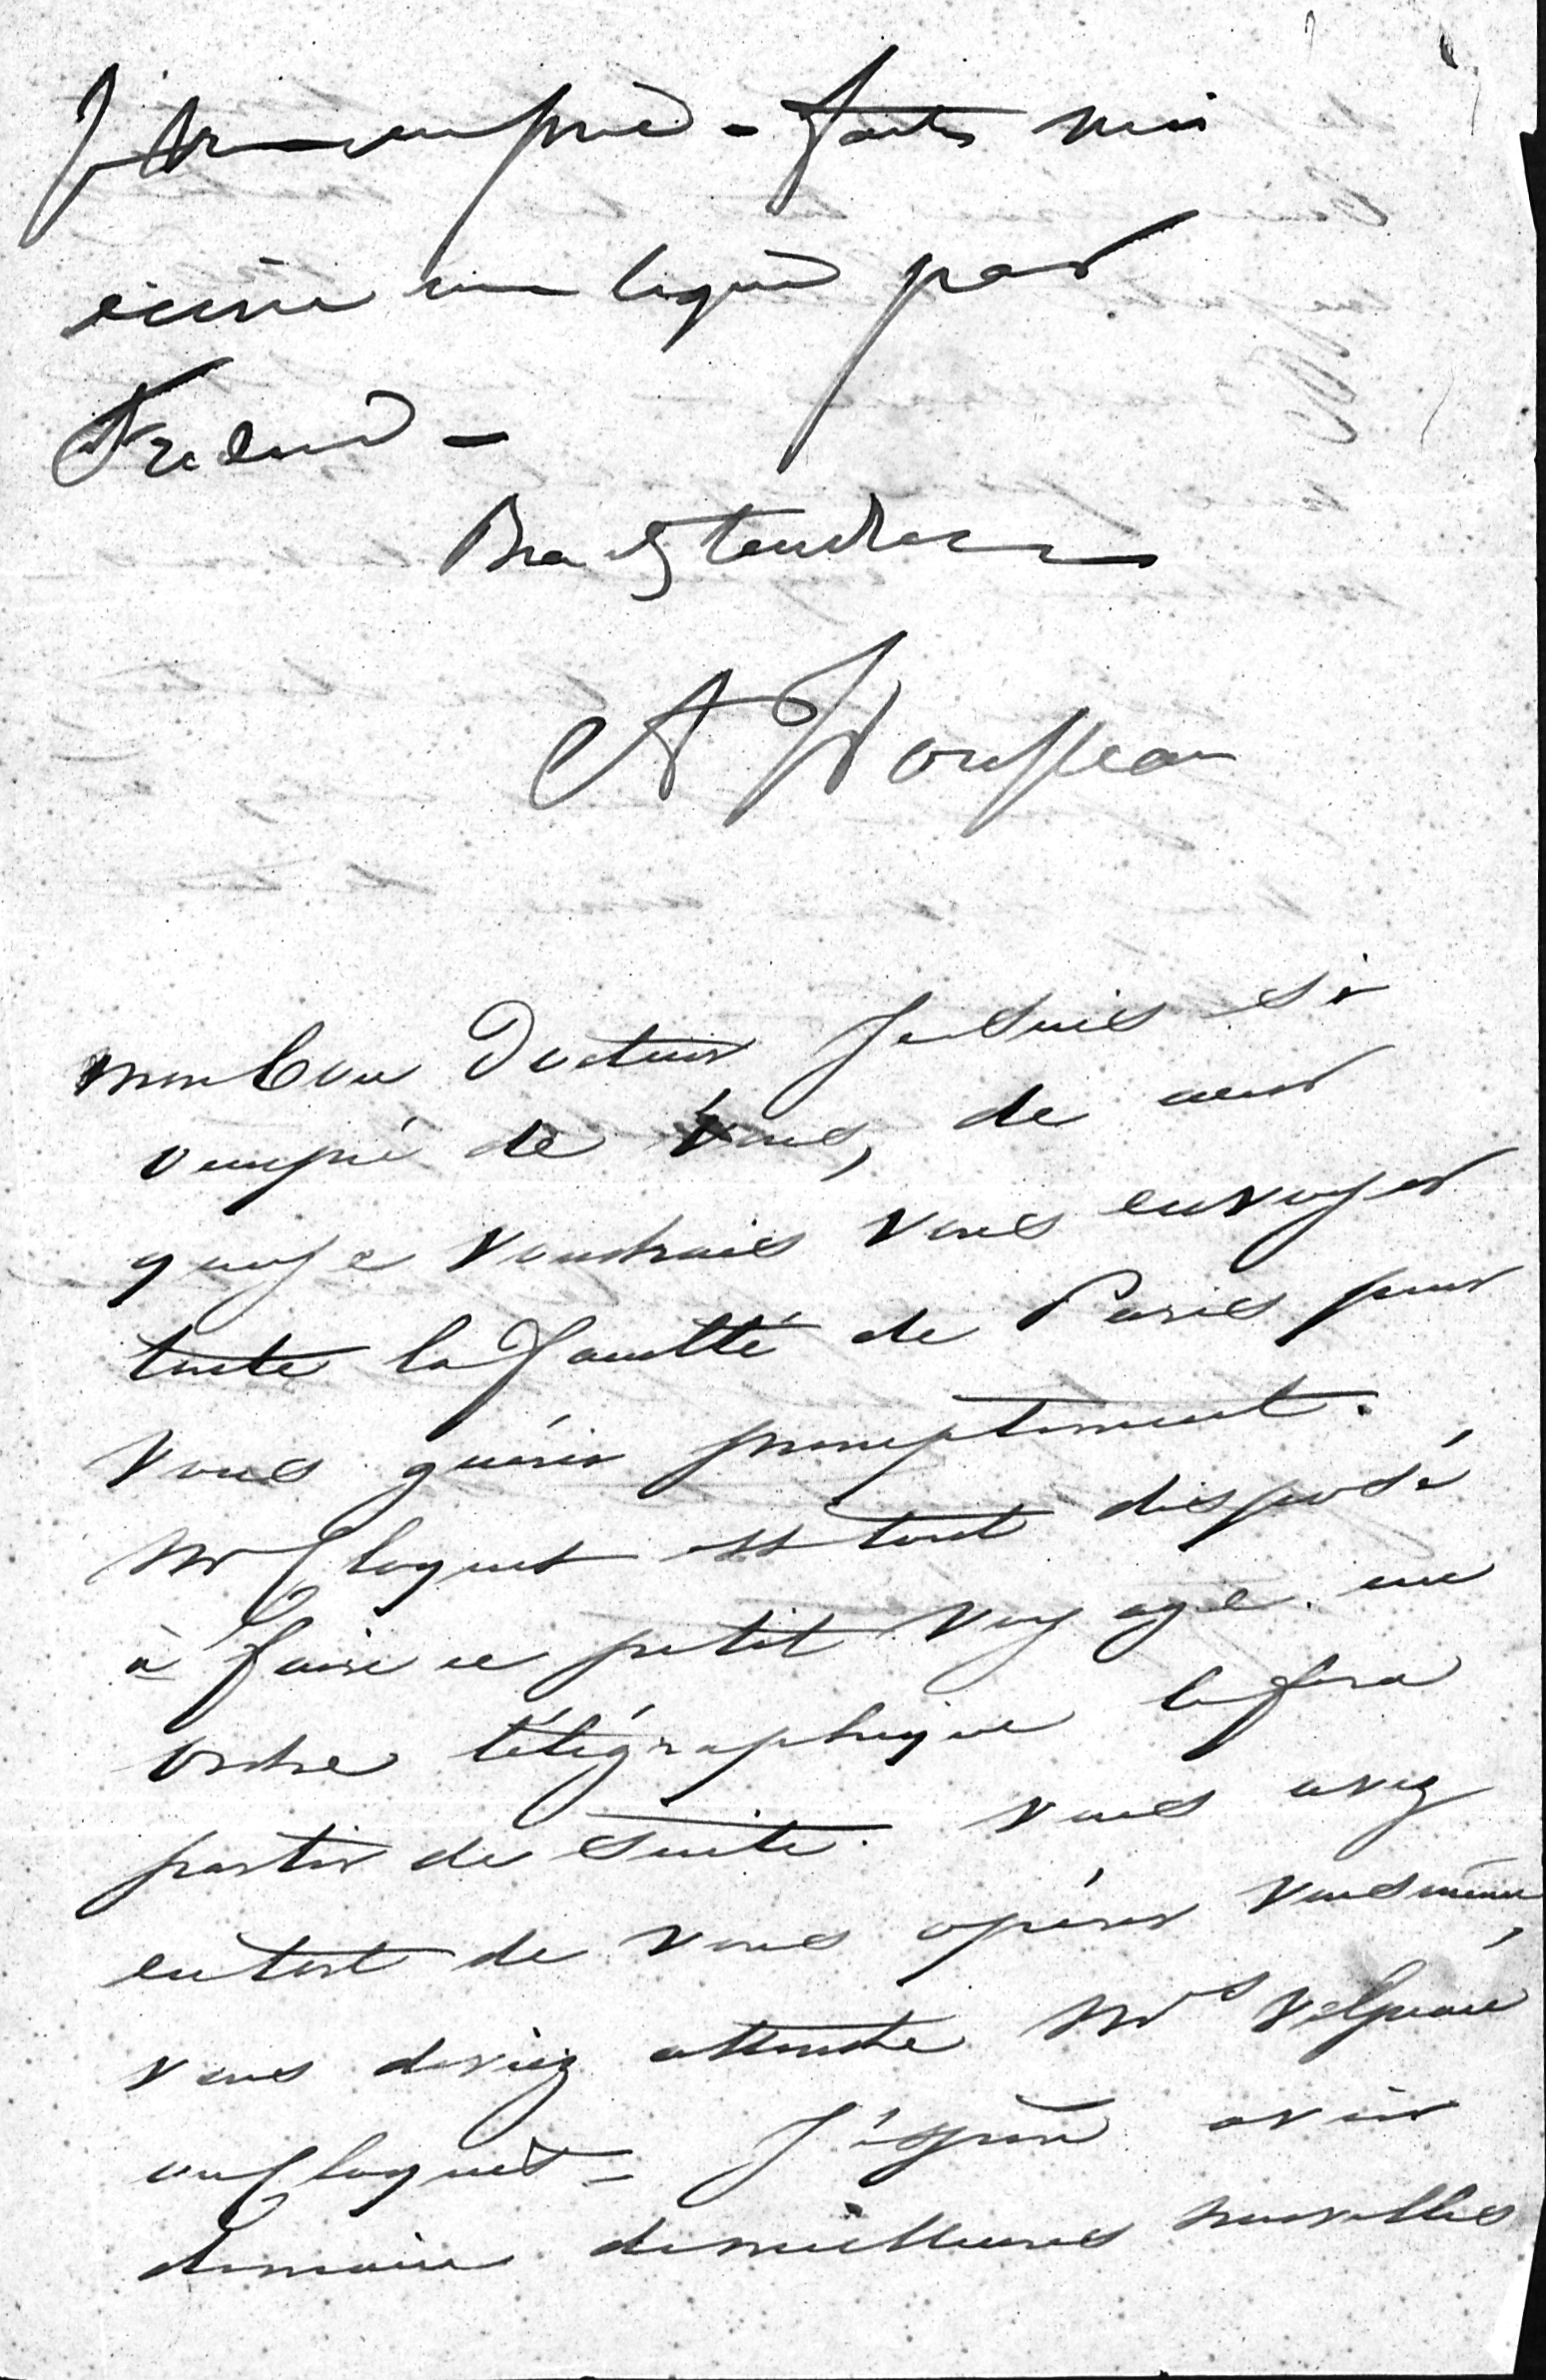 Je vous prie - faites moi
écrire une ligne par
Bien tendrement
A Housseau
mon bon Docteur, je suis si
occupé de vous, de cœur
que je voudrais vous envoyer
toute la faculté de Paris pour
vous guérir promptement.
Mr Cloquet est tout disposé
à faire ce petit voyage. un
ordre télégraphique le fera
partir de suite. vous avez
eu tort de vous opérer vous même,
vous deviez attendre Mrs Velpeau
ou Cloquet - J'espère avoir
demain de meilleures nouvelles